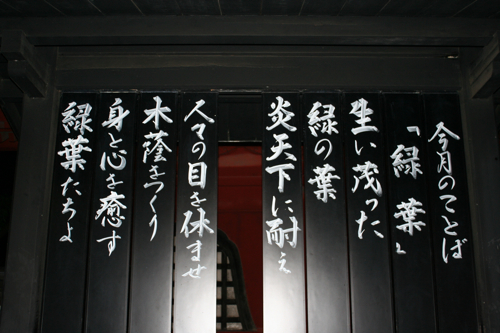 今月のことば
「緑葉」
生い茂った
緑の葉
炎天下に耐え
人々の目を休ませ
木蔭をつくり
身と心を癒す
緑葉たちよ